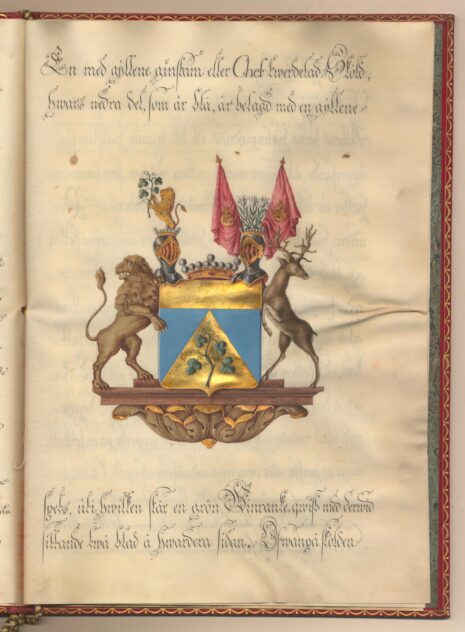 En med gyllene ginstam eller Chef twerdelad Sköld,
hwars nedra del, som är blå, är belagd med en gyllene
spets, uti hwilken står en grön Winranke qwist med derwid
sittande twå blad å hwardera sidan. Ofwanpå skölden